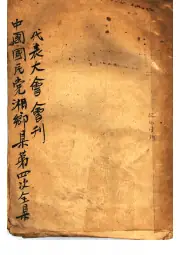 中國國民党湘鄉县第四次全县
代表大會會刊